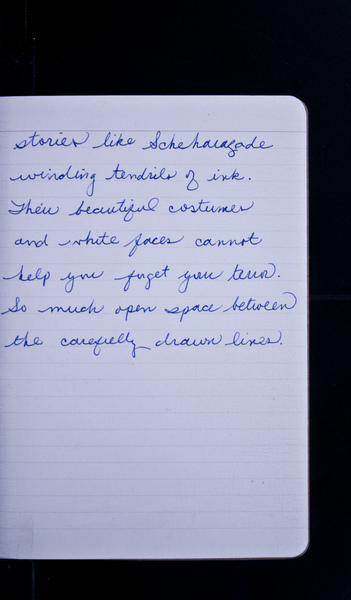 stories like Scheharazade
winding tendrils of ink.
Their beautiful costumes
and white faces cannot
help you forget your terror.
So much open space between
the carefully drawn lines.